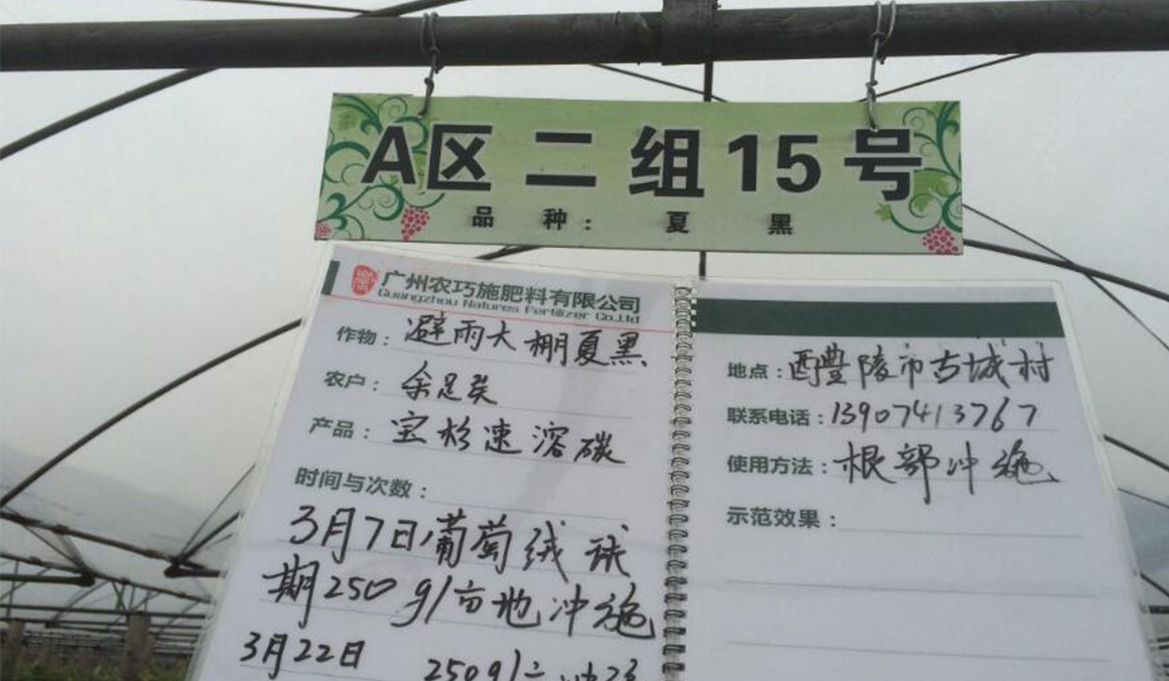 A区二组15号
品种：夏黑
广州农巧施肥料有限公司
Guangzhou Natures Fertilizer Co.Ltd
作物：避雨大棚夏黑
农户：余足癸
产品：宝杉速溶碳
时间与次数：
3月7日葡萄绒球
期250g/亩地冲施
3月22日 250g/亩冲施
地点：醴陵市古城村
联系电话：13907413767
使用方法：根部冲施
示范效果：